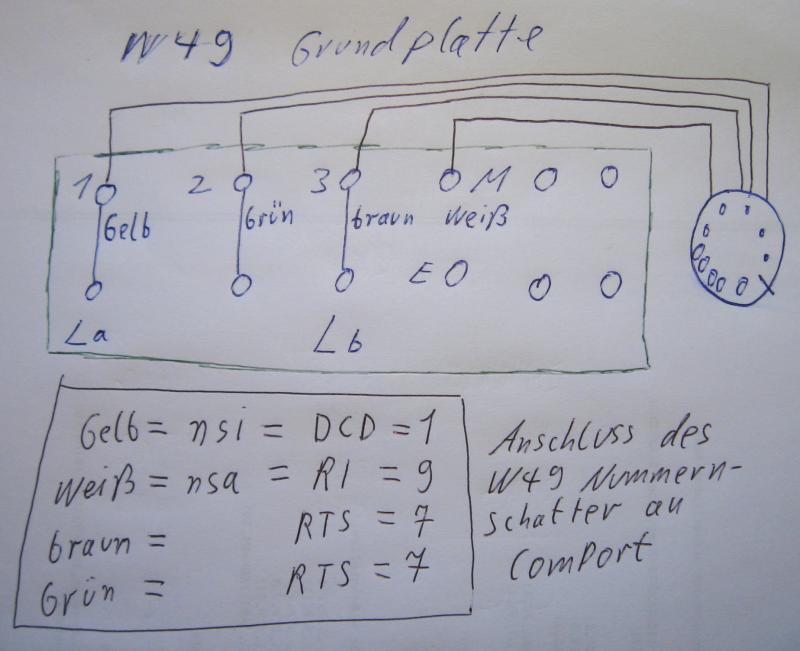 W49 Grundplatte
1 2 3 M
Gelb Grün braun weiß
E
La Lb
Gelb = nsi = DCD = 1
weiß = nsa = RI = 9
braun = RTS = 7
Grün = RTS = 7
Anschluss des
W49 Nummern-
schatter an
ComPort